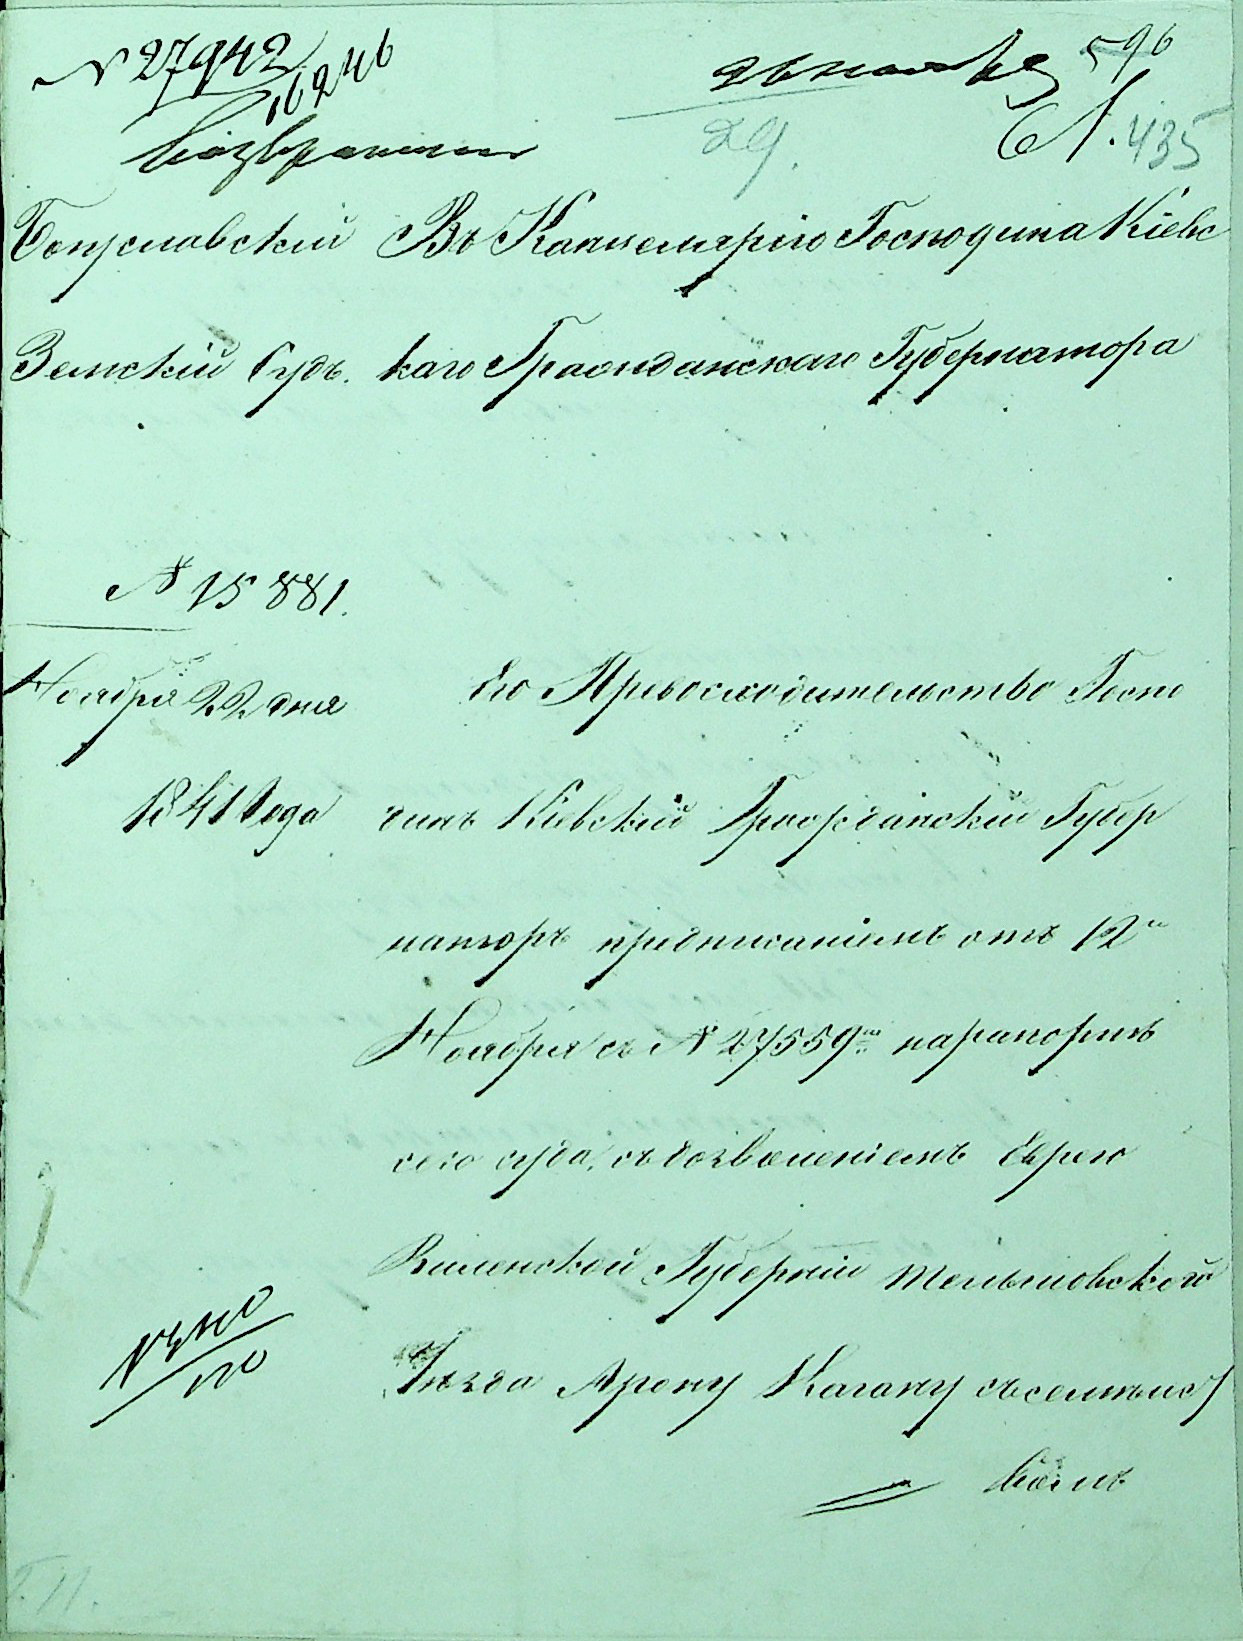 N 27942
16246
596
29.
435
Богуславскій
Земскій Судъ.
Въ Канцелярію Господина Кіевс
каго Гражданскаго Губернатора
N 15881.
Ноября 22 дня
1841 года
Его Превосходительство Госпо
динъ Кіевскій Гражданскій Губер
наторъ предписаніемъ отъ 12го
Ноября съ N 27559мъ на рапортъ
сего суда, съ дозволеніемъ Еврею
Виленской Губерніи Тельшовского
Уезда Арону Кагану съ семействомъ